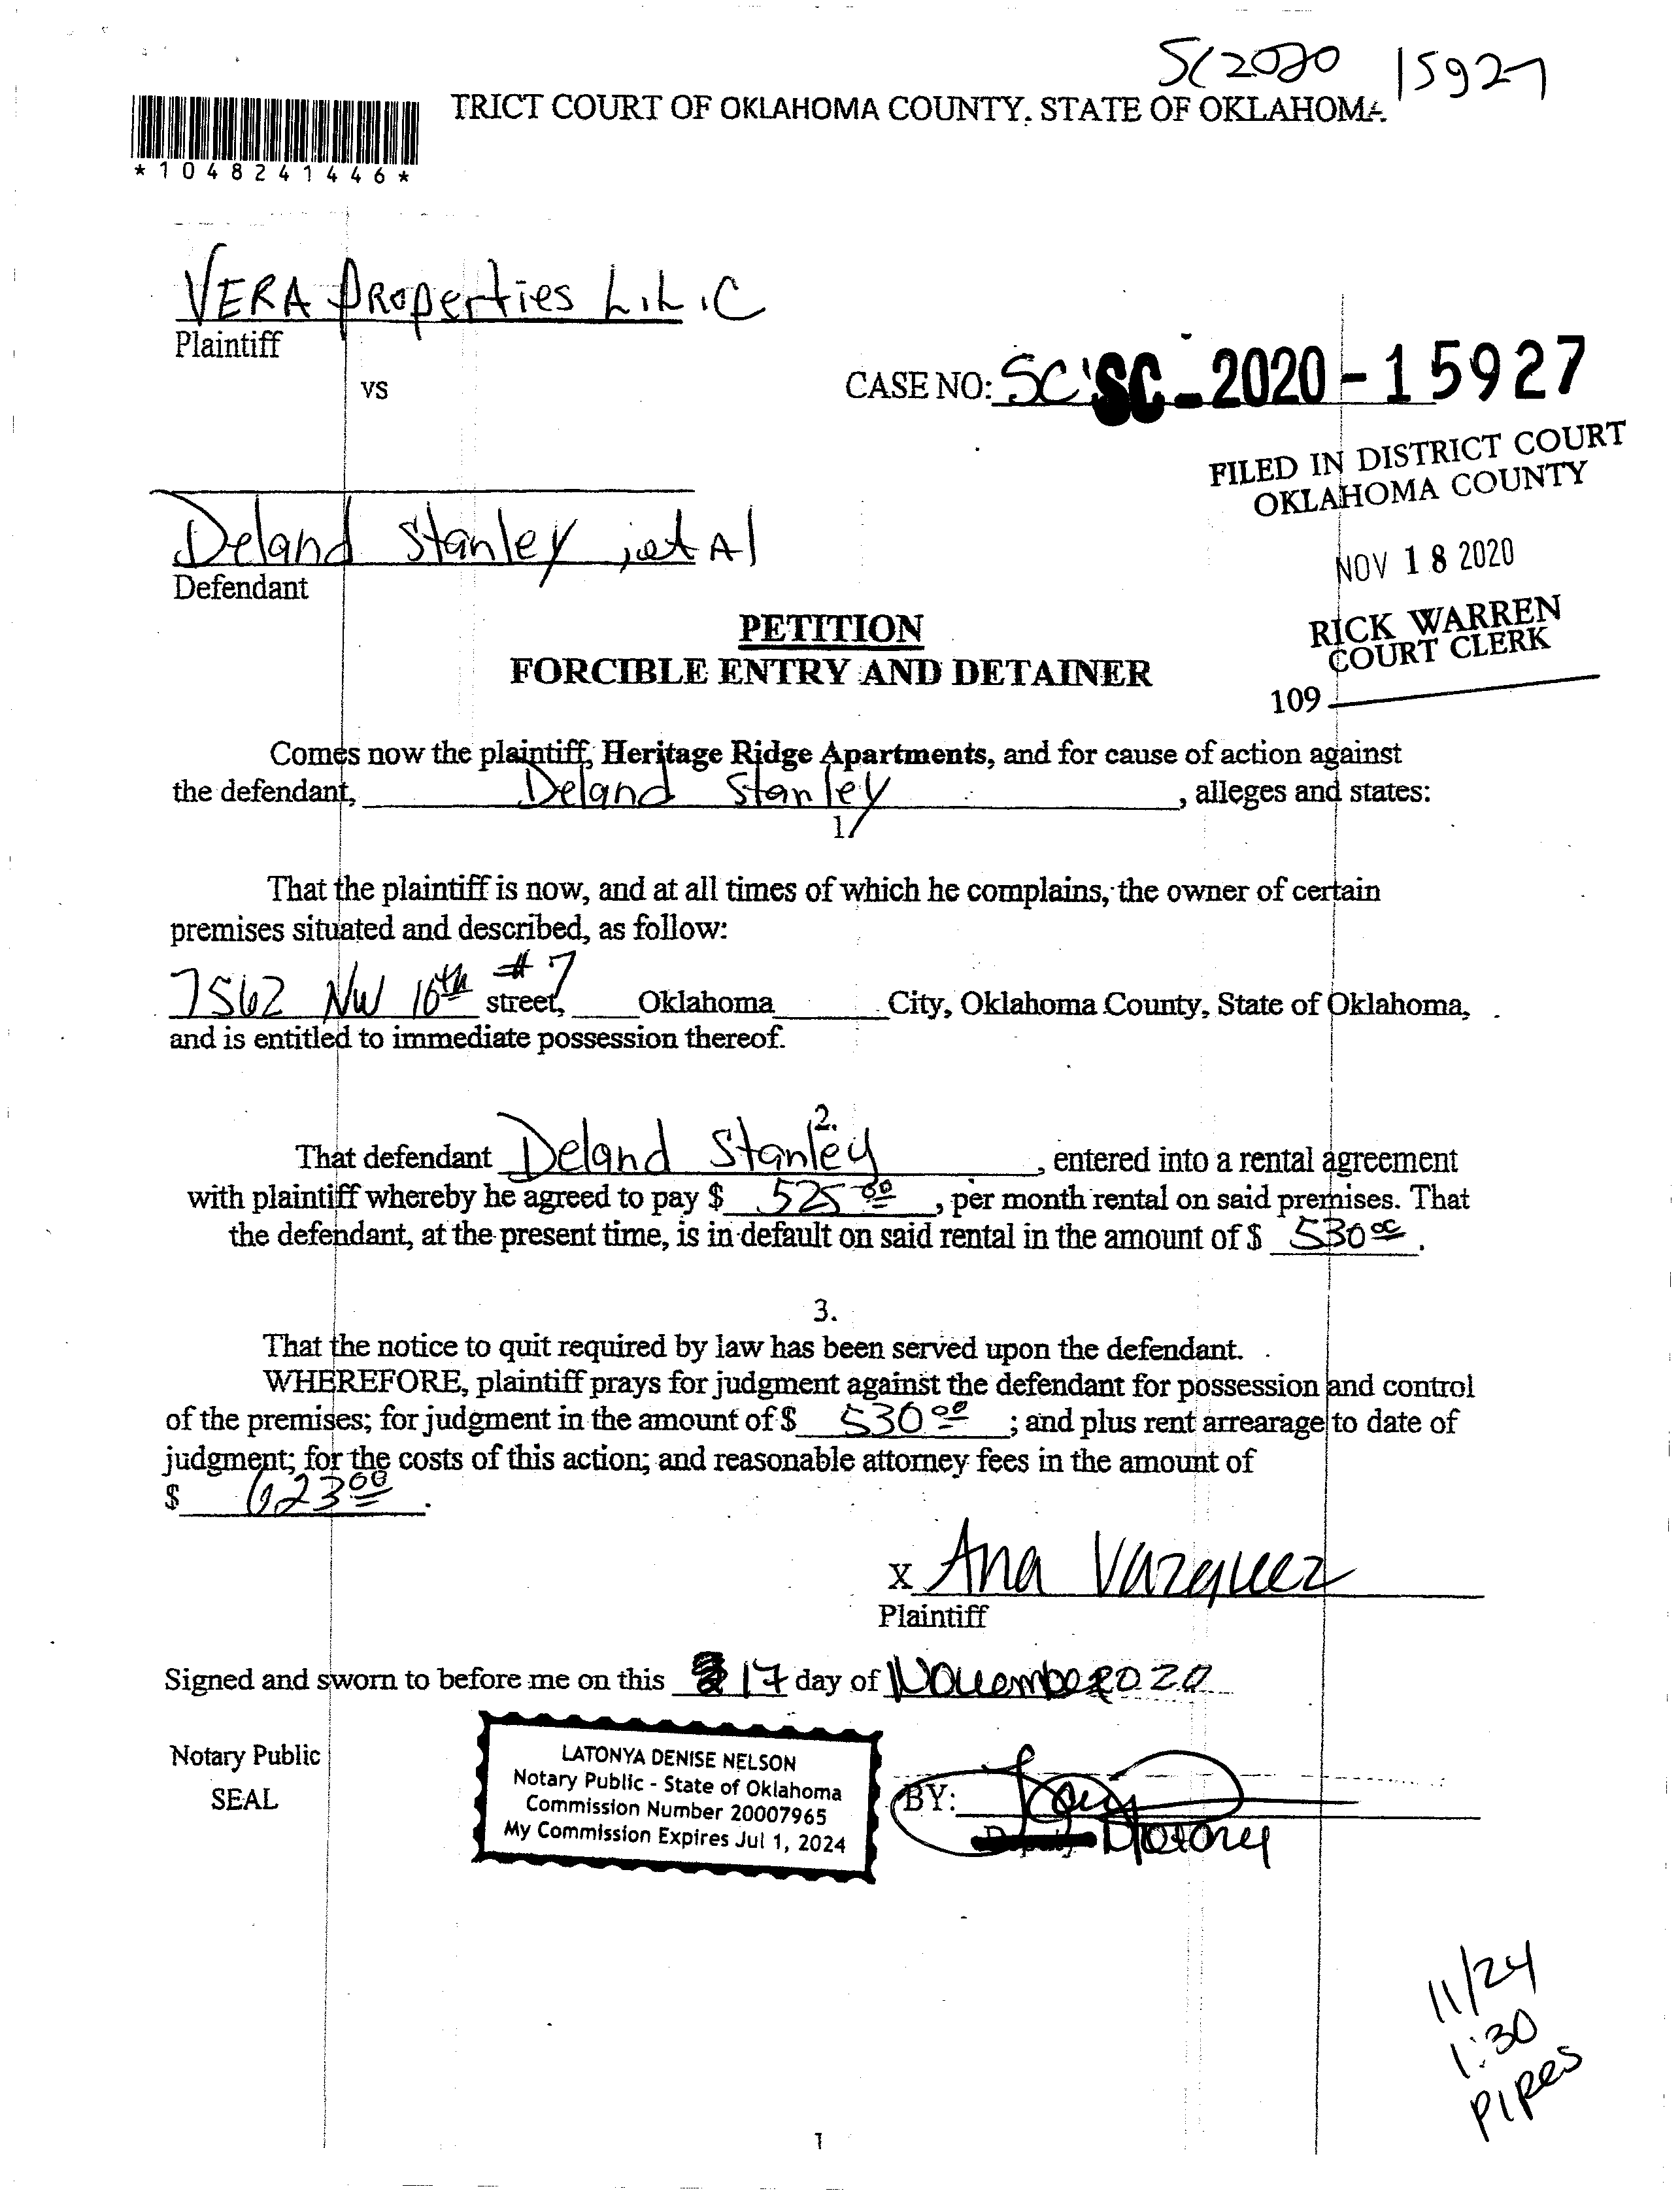 SC2020 15927
TRICT COURT OF OKLAHOMA COUNTY, STATE OF OKLAHOMA
*1048241446*
VERA PROperties L.L.C
Plaintiff
vs
CASE NO: SC SC-2020-15927
FILED IN DISTRICT COURT
OKLAHOMA COUNTY
NOV 18 2020
RICK WARREN
COURT CLERK
109
Deland Stanley ;et Al
Defendant
PETITION
FORCIBLE ENTRY AND DETAINER
Comes now the plaintiff, Heritage Ridge Apartments, and for cause of action against
the defendant, Deland Stanley, alleges and states:
1.
That the plaintiff is now, and at all times of which he complains, the owner of certain
premises situated and described, as follow:
7562 NW 10th #7 street, Oklahoma City, Oklahoma County, State of Oklahoma,
and is entitled to immediate possession thereof.
2.
That defendant Deland Stanley, entered into a rental agreement
with plaintiff whereby he agreed to pay $ 525 00, per month rental on said premises. That
the defendant, at the present time, is in default on said rental in the amount of $ 530 00.
3.
That the notice to quit required by law has been served upon the defendant.
WHEREFORE, plaintiff prays for judgment against the defendant for possession and control
of the premises; for judgment in the amount of $ 530 00; and plus rent arrearage to date of
judgment; for the costs of this action; and reasonable attorney fees in the amount of
$ 623 00.
X Ana Vazquez
Plaintiff
Signed and sworn to before me on this 17 day of November 2020
Notary Public
SEAL
LATONYA DENISE NELSON
Notary Public - State of Oklahoma
Commission Number 20007965
My Commission Expires Jul 1, 2024
BY:
Deputy Notary
11/24
1:30
Pipes
1